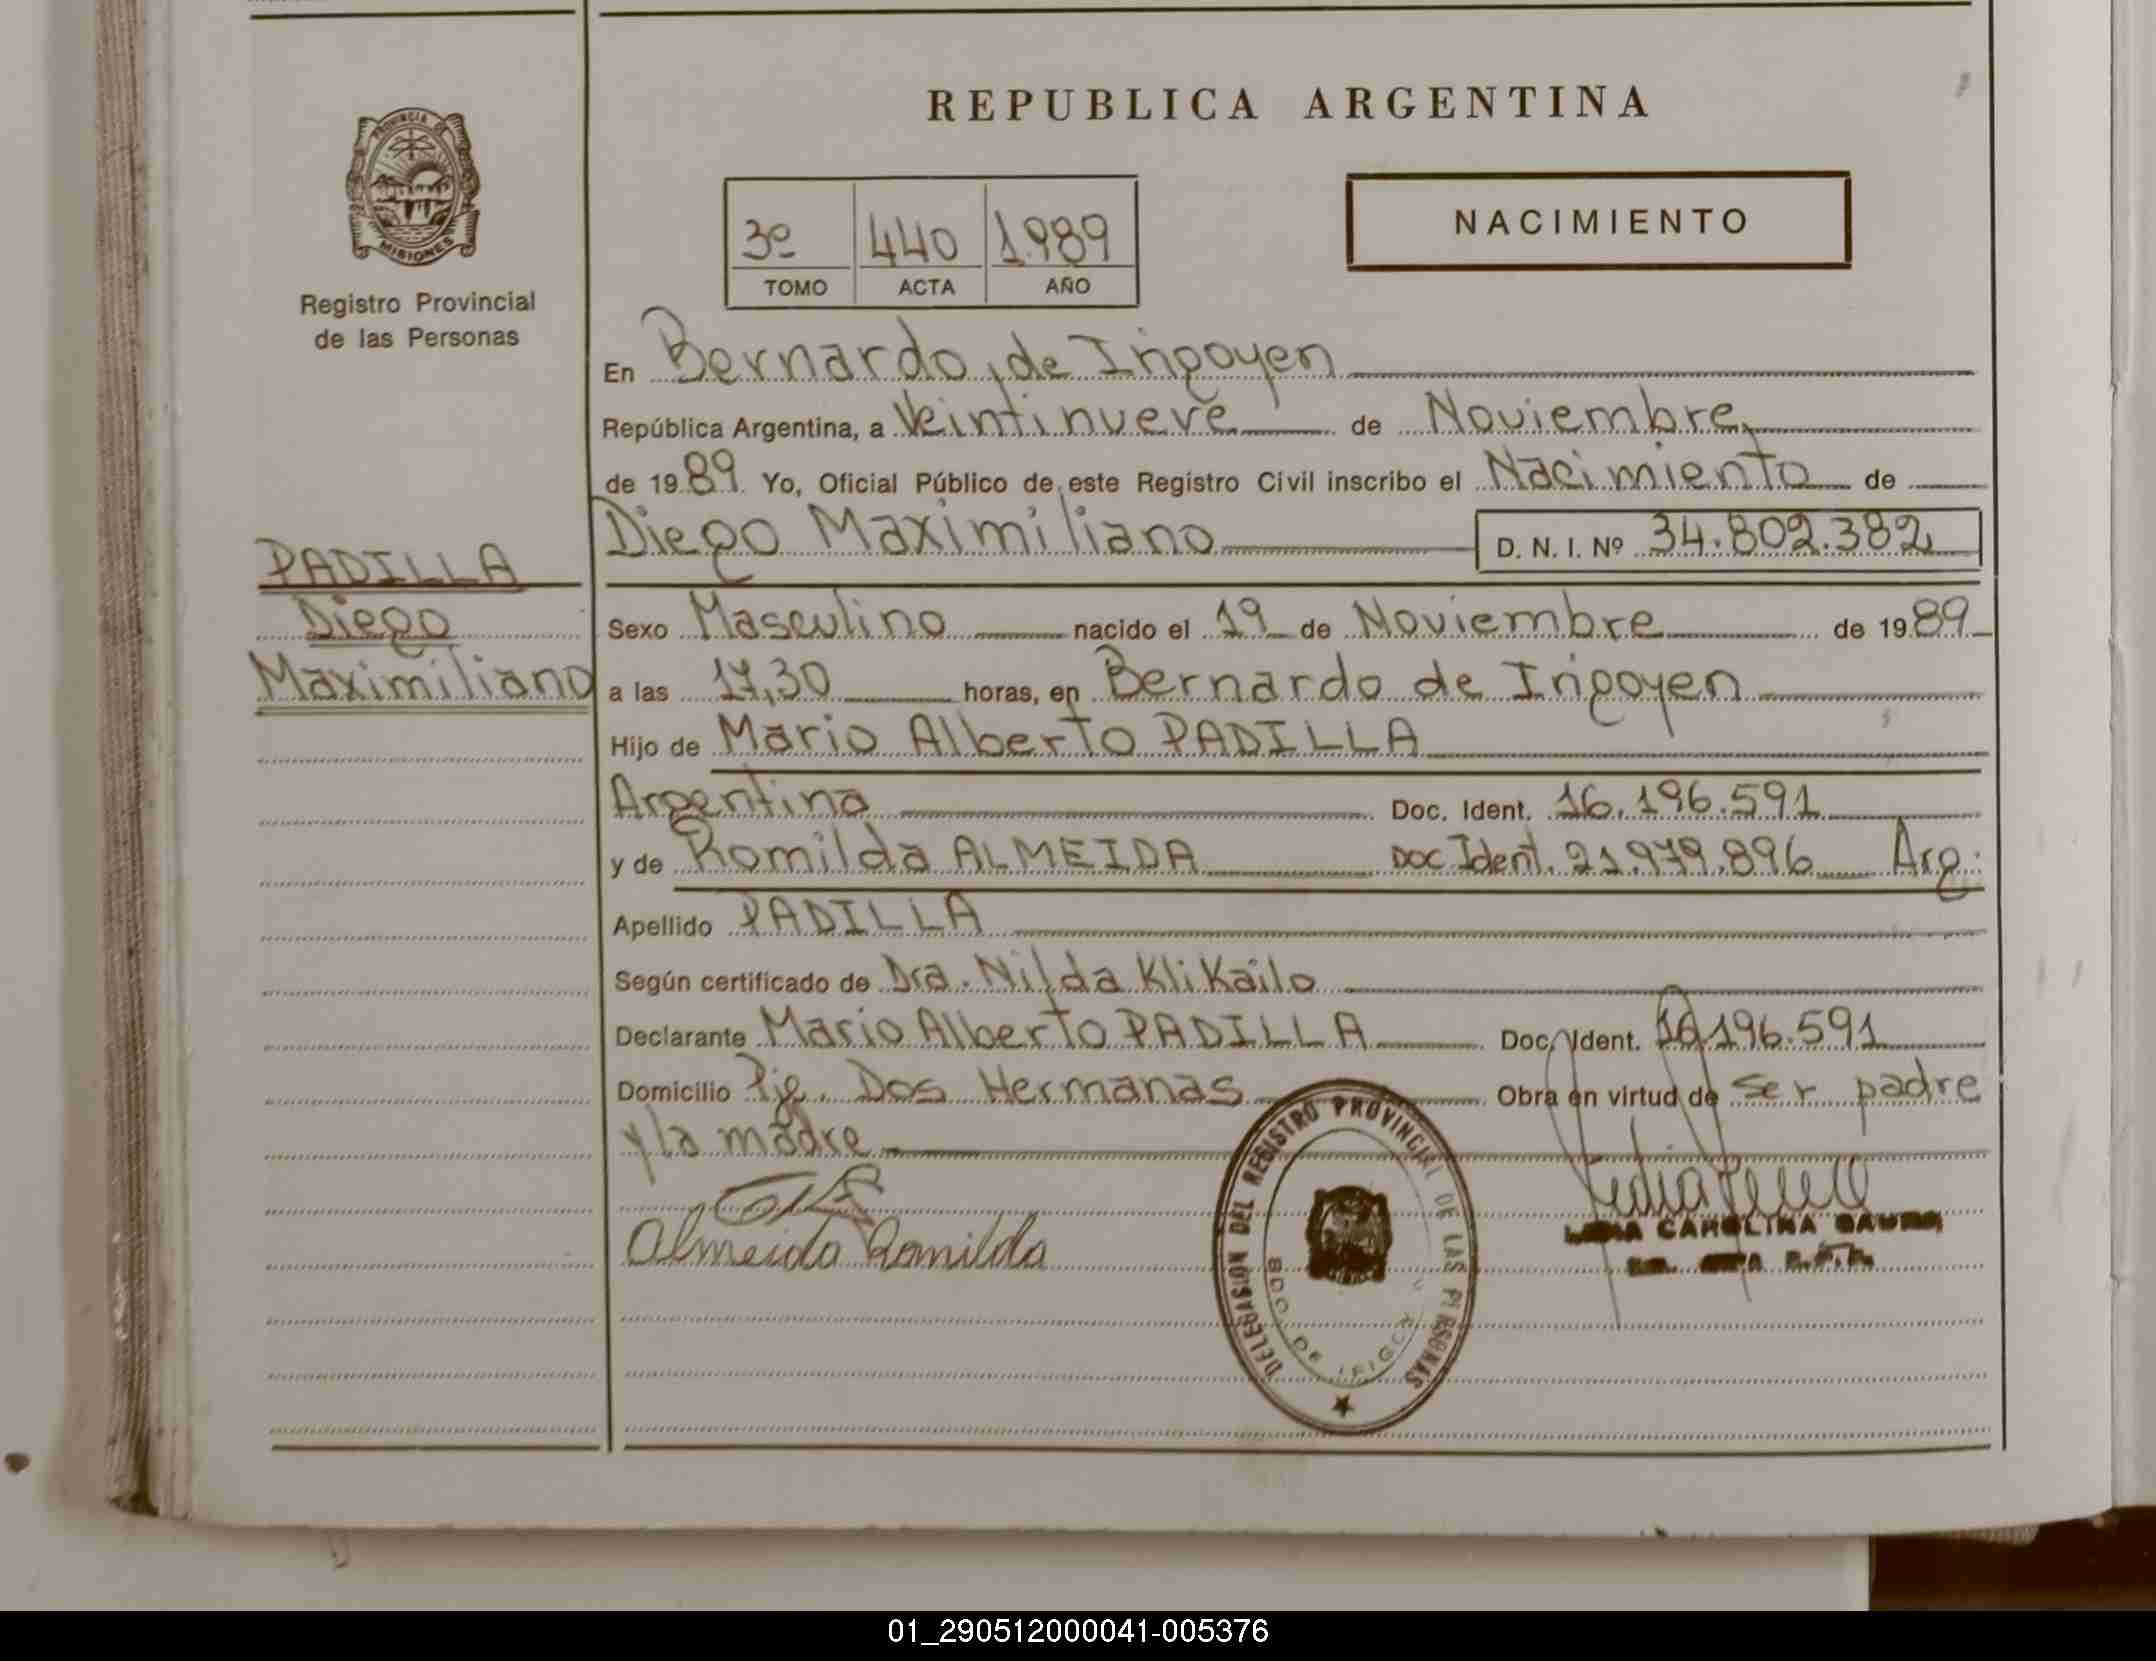 REPUBLICA ARGENTINA
PROVINCIA DE
MISIONES
Registro Provincial
de las Personas
NACIMIENTO
3º 440 1.989
TOMO ACTA AÑO
En Bernardo de Irigoyen
República Argentina, a Veintinueve de Noviembre
de 1989 Yo, Oficial Público de este Registro Civil inscribo el Nacimiento de
Diego Maximiliano D. N. I. Nº 34.802.382
PADILLA
Diego
Maximiliano
Sexo Masculino nacido el 19 de Noviembre de 1989
a las 17,30 horas, en Bernardo de Irigoyen
Hijo de Mario Alberto PADILLA
Argentina Doc. Ident. 16.196.591
y de Romilda ALMEIDA Doc Ident. 21.979.896 Arg.
Apellido PADILLA
Según certificado de Dra. Nilda KliKailo
Declarante Mario Alberto PADILLA Doc. Ident. 16.196.591
Domicilio Pje. Dos Hermanas Obra en virtud de ser padre
y la madre
Almeida Romilda
DELEGASION DEL REGISTRO PROVINCIAL DE LAS PERSONAS
BDO. DE
CAROLINA
01_290512000041-005376